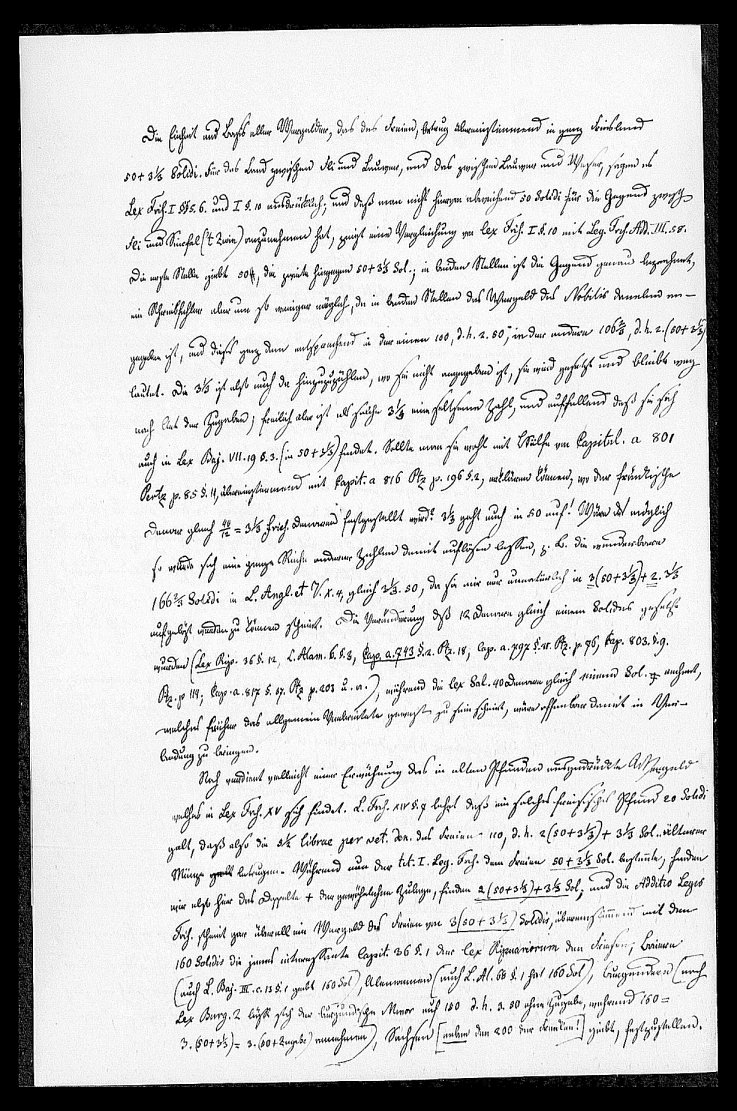 Die Einheit und Basis aller Wergelder, das des Freien, betrug übereinstimmend in ganz Friesland
50 + 3⅓ Solidi. Für das Land zwischen Fli und Lauwers, und das zwischen Lauwers und Weser, sagen es
Lex Fris. I §§ 5. 6. und I § 10 ausdrücklich; und daß man nicht hiervon abweichend 50 Solidi für die Gegend zwisch.
Fli und Sincfal ('t Zwin) anzunehmen hat, zeigt eine Vergleichung von Lex Fris. I § 10 mit Leg. Fris. Add. III. 58.
Die erste Stelle giebt 50, die zweite hingegen 50 + 3⅓ Sol.; in beiden Stellen ist die Gegend genau bezeichnet,
ein Schreibfehler aber um so weniger möglich, da in beiden Stellen das Wergeld des Nobilis daneben an-
gegeben ist, und dieses ganz dem entsprechend in der einen 100, d. h. 2. 50, in der andern 106⅔, d. h. 2. (50 + 3⅓)
lautet. Die 3⅓ ist also auch da hinzuzuzählen, wo sie nicht angegeben ist, sie wird gesetzt und bleibt weg
nach Art der Zugaben; freilich aber ist als solche 3⅓ eine seltsame Zahl, und auffallend daß sie sich
auch in Lex Baj. VII. 19 § 3. (in 50 + 3⅓) findet. Sollte man sie wohl mit Hülfe von Capitul. a 801
Pertz p. 85 § 11, übereinstimmend mit Capit. a 816 Ptz p. 196 § 2, erklären können, wo der fränkische
Denar gleich 40/12 = 3⅓ fries. Denaren festgestellt wird? 3⅓ geht auch in 50 auf! Wäre das möglich
so würde sich eine ganze Reihe anderer Zahlen damit auflösen lassen, z. B. die wunderbare
166⅔ Solidi in L. Angl. et V. X. 4, gleich 3⅓. 50, da sie mir nur unnatürlich in 3 (50 + 3⅓) + 2. 3⅓
aufgelöst werden zu können scheint. Die Veränderung daß 12 Denare gleich einem Solidus gesetzt
wurden (Lex Rip. 36 § 12, L. Alam. 6. § 3, Cap. a. 743 § 2. Ptz. 18, Cap. a. 797 § 11. Ptz. p 76, Cap. 803. § 9.
Ptz. p 114, Cap. a. 817 § 17. Ptz p. 203 u. a.) während die Lex Sal. 40 Denare gleich einem Sol. rechnet,
welches früher das allgemein Verbreitete gewesen zu sein scheint, wäre offenbar damit in Ver-
bindung zu bringen.
Noch verdient vielleicht einer Erwähnung das in alten Pfunden ausgedrückte Wergeld
welches in Lex Fris. XV sich findet. L. Fris. XIV § 7 lehrt daß ein solches friesisches Pfund 20 Solidi
galt, daß also die 5½ librae per vet. den. des Freien = 110, d. h. 2 (50 + 3⅓) + 3⅓ Sol. älterer
Münze betrugen. Während nun der tit. I. Leg. Fris. dem Freien 50 + 3⅓ Sol. bestimmte, finden
wir also hier das Doppelte + der gewöhnlichen Zulage, finden 2 (50 + 3⅓) + 3⅓ Sol., und die Additio Leges
Fris. scheint gar überall ein Wergeld des Freien von 3 (50 + 3⅓) Solidis, übereinstimmend mit den
160 Solidis die jenes interessante Capit. 36 § 1 der Lex Ripuariorum den Friesen, Baiern
(auch L. Baj. III. c. 13 § 1 giebt 160 Sol), Alamannen (auch L. Al. 68 § 1 hat 160 Sol), Burgundern (nach
Lex Burg. 2 büßt sich der burgundische Minor auf 150 d. h. 3. 50 ohne Zugabe, während 160 =
3. (50 + 3⅓) = 3. (50 + Zugabe) annehmen), Sachsen [neben den 200 der Franken!] giebt, festzustellen.